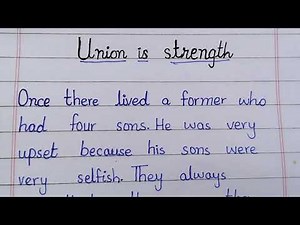 Union is strength
Once there lived a former who
had four sons. He was very
upset because his sons were
very selfish. They always